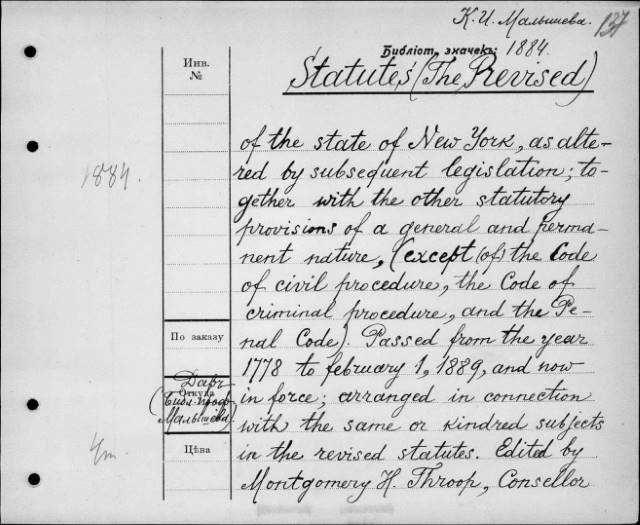 К. И. Малышева. 137
Библіот. значекъ: 1884.
Инв.
№
Statutes (The Revised)
of the state of New York, as alte-
red by subsequent legislation; to-
1884.
gether with the other statutory
provisions of a general and perma-
nent nature, (except (of) the Code
of civil procedure, the Code of
criminal procedure, and the Pe-
По заказу
nal Code). Passed from the year
1778 to february 1, 1889, and now
Даръ
Откуда
(Библ. проф.
Малышева).
in force; arranged in connection
with the same or kindred subjects
Цѣна
in the revised statutes. Edited by
Montgomery H. Throop, Consellor